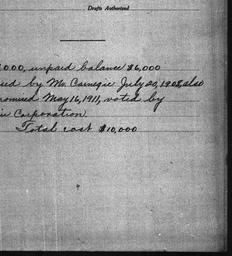 Drafts Authorized
,000, unpaid balance $6,000
ied by Mr. Carnegie July 20, 1908, also
romised May 16, 1911, voted by
ie Corporation.
Total cost $10,000